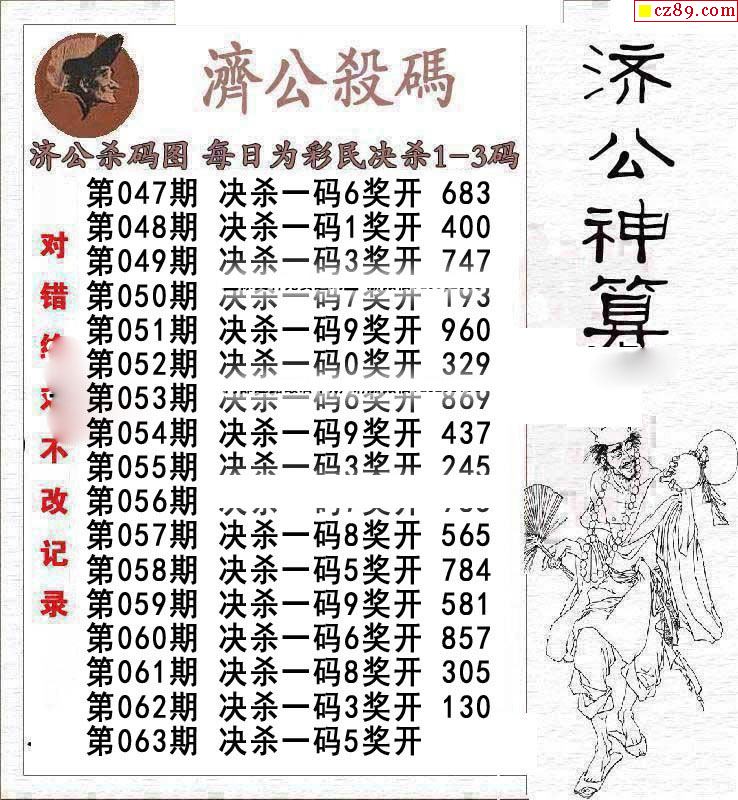 cz89.com
濟公殺碼
济公杀码图 每日为彩民决杀1-3码
第047期 决杀一码6奖开 683
第048期 决杀一码1奖开 400
第049期 决杀一码3奖开 747
第050期 决杀一码7奖开 193
第051期 决杀一码9奖开 960
第052期 决杀一码0奖开 329
第053期 决杀一码6奖开 869
第054期 决杀一码9奖开 437
第055期 决杀一码3奖开 245
第056期
第057期 决杀一码8奖开 565
第058期 决杀一码5奖开 784
第059期 决杀一码9奖开 581
第060期 决杀一码6奖开 857
第061期 决杀一码8奖开 305
第062期 决杀一码3奖开 130
第063期 决杀一码5奖开
对错 不改记录
济公神算